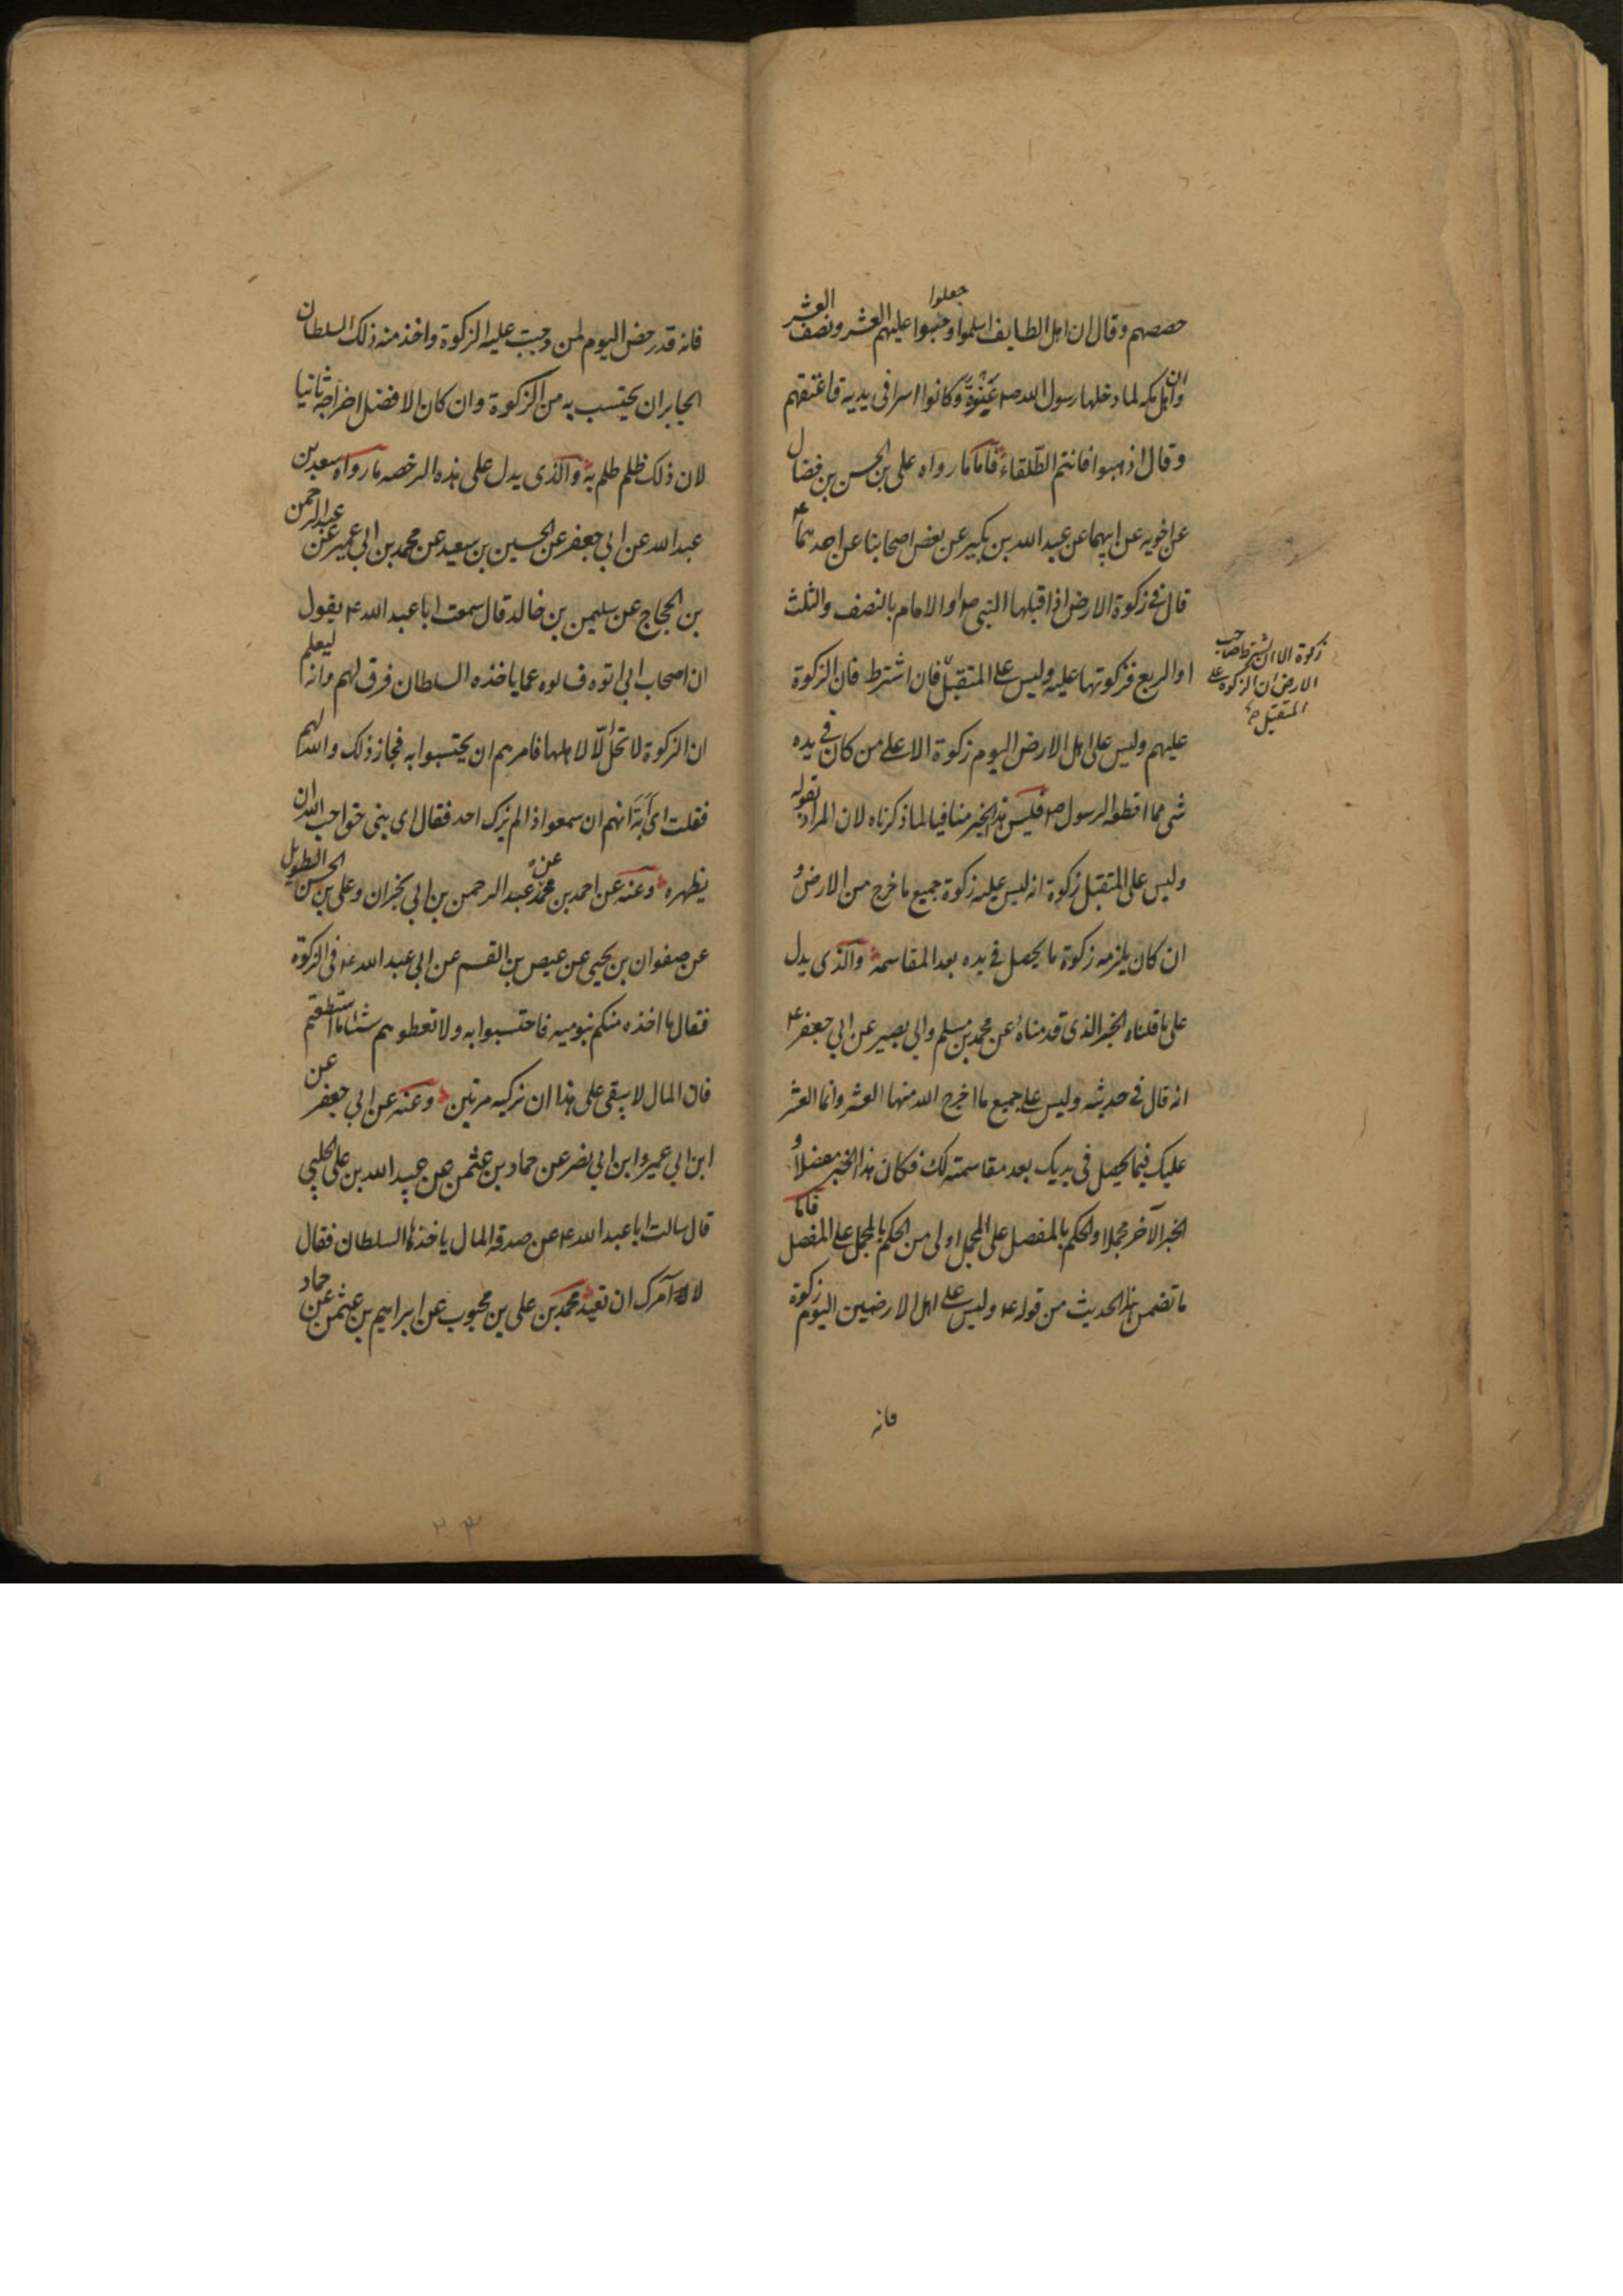 حصصهم وقال ان اهل الطايف اسلموا وجعلوا عليهم العشر ونصف العشر
وان اهل مكه لما دخلها رسول الله ص عَنْوَةً وكانوا اسرا فى يديه فاعتقهم
وقال اذهبوا فانتم الطّلقاء فاما ما رواه على بن الحسن بن فضال
عن اخويه عن ابيهما عن عبد الله بن بكير عن بعض اصحابنا عن احدهما ع
قال فى زكوة الارض اذا قبلها النبى ص او الامام بالنصف والثلث
او الربع فزكوتها عليه وليس على المتقبّل فان اشترط فان الزكوة
زكوة الا ان يشترط صاحب
الارض ان الزكوة على
المتقبل صح
عليهم وليس على اهل الارض اليوم زكوة الا على من كان فى يده
شى مما اقطعه الرسول ص فليس هذا الخبر منافيا لما ذكرناه لان المراد بقوله
وليس على المتقبل زكوة انه ليس عليه زكوة جميع ما خرج من الارض و
ان كان يلزمه زكوة ما يحصل فى يده بعد المقاسمة والذى يدل
على ما قلناه الخبر الذى قدمناه عن محمد بن مسلم وابى بصير عن ابى جعفر ع
انه قال فى حديثه وليس على جميع ما اخرج الله منها العشر وانما العشر
عليك فيما يحصل فى يديك بعد مقاسمته لك فكان هذا الخبر مفصلا و
الخبر الآخر مجملا والحكم بالمفصل على المجمل اولى من الحكم بالمجمل على المفصل فاما
ما تضمن هذا الحديث من قوله ع وليس على اهل الارضين اليوم زكوة
فانه
فانه قد رخص اليوم لمن وجبت عليه الزكوة واخذ منه ذلك السلطان
الجاير ان يحتسب به من الزكوة وان كان الافضل اخراجه ثانيا
لان ذلك ظلم ظلم به والذى يدل على هذه الرخصه ما رواه سعد بن
عبد الله عن ابى جعفر عن الحسين بن سعيد عن محمد بن ابى عمير عن عبد الرحمن
بن الحجاج عن سليمن بن خالد قال سمعت ابا عبد الله ع يقول
ان اصحاب ابى اتوه فسالوه عما ياخذه السلطان فرق لهم وانه ليعلم
ان الزكوة لا تحل الّا لاهلها فامرهم ان يحتسبوا به فجاز ذلك والله لهم
فقلت اى اَبَة انهم ان سمعوا اذا لم يزك احد فقال اى بنى حق احب الله ان
يظهره وعنه عن احمد بن محمد عن عبد الرحمن بن ابى نجران وعلى بن الحسن الطويل
عن صفوان بن يحيى عن عيص بن القسم عن ابى عبد الله ع فى الزكوة
فقال ما اخذه منكم بنو ميه فاحتسبوا به ولا تعطوهم شيئا ما استطعتم
فان المال لا يبقى على هذا ان تزكيه مرتين وعنه عن ابى جعفر عن
ابن ابى عمير وابن ابى نصر عن حماد بن عثمن عن عبيد الله بن على الحلبى
قال سالت ابا عبد الله ع عن صدقه المال ياخذها السلطان فقال
لا آمرك ان تعيد محمد بن على بن محبوب عن ابراهيم بن عثمن عن حماد
۲۳